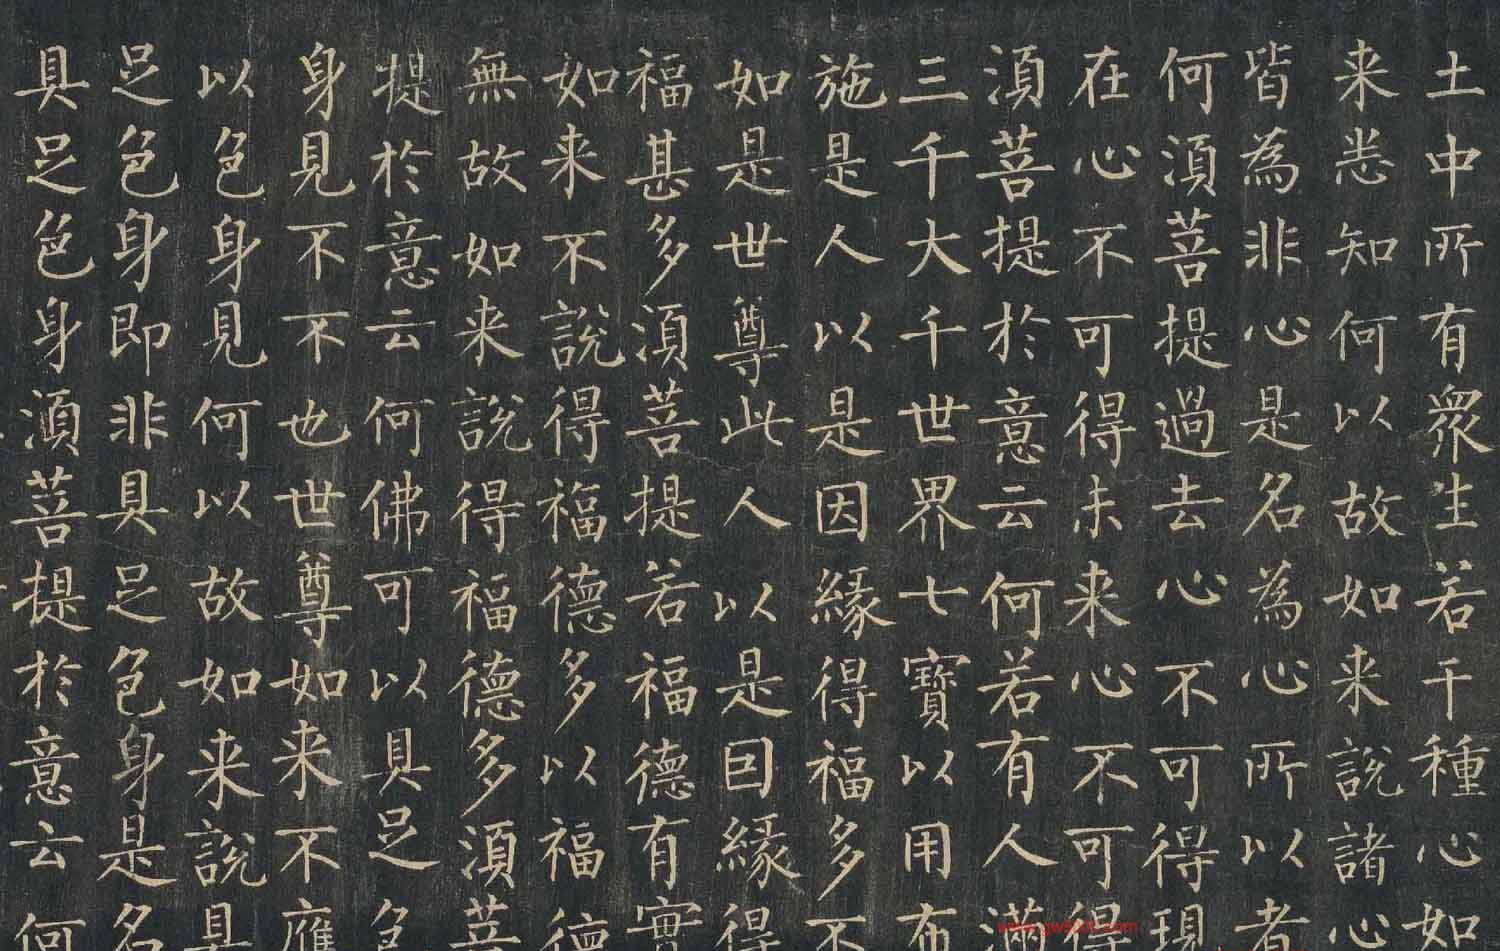 土中所有衆生若干種心如
来悉知何以故如来說諸心
皆為非心是名為心所以者
何湏菩提過去心不可得現
在心不可得未来心不可得
湏菩提於意云何若有人滿
三千大千世界七寶以用布
施是人以是因緣得福多不
如是世尊此人以是因緣得
福甚多湏菩提若福德有實
如来不說得福德多以福德
無故如来說得福德多湏菩
提於意云何佛可以具足色
身見不不也世尊如来不應
以色身見何以故如来說具
足色身即非具足色身是名
具足色身湏菩提於意云何